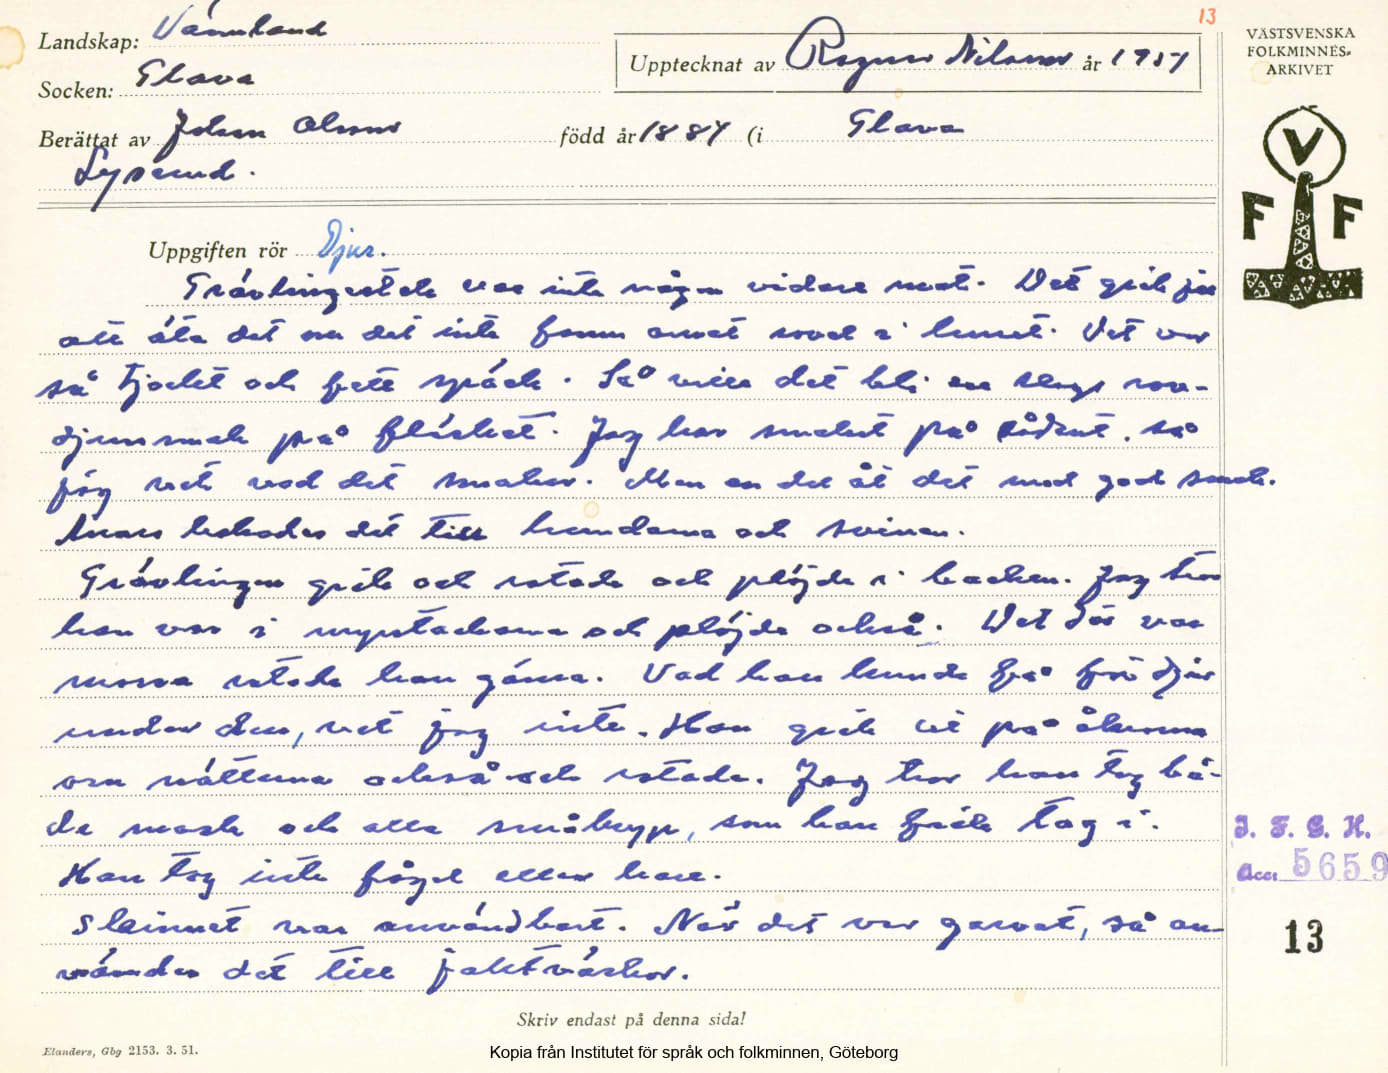 13
Landskap: Värmland
Socken: Glava
Upptecknat av Ragnar Nilsson år 1957
Berättat av Johan Olsson född år 1884 (i Glava
Lysesund.
VÄSTSVENSKA
FOLKMINNES-
ARKIVET
V
F F
Uppgiften rör Djur.
Grävlingstek var inte någon vidare mat. Det gick ju
att äta det om det inte fanns annat sovel i huset. Det var
så tjockt och fett späck. Så ville det bli en slags rov-
djurssmak på fläsket. Jag har smakat på sådant, så
jag vet vad det smakar. Men en del åt det med god smak.
Annars kokades det till hundarna och svinen.
Grävlingen gick och rotade och plöjde i backen. Jag tror
han var i myrstackarna och plöjde också. Det där var
mossa rotade han gärna. Vad han kunde få för djur
under den, vet jag inte. Han gick ut på åkrarna
om nätterna också och rotade. Jag tror han tog bå-
de mask och alla småkryp, som han fick tag i.
Han tog inte fågel eller hare.
Skinnet var användbart. När det var garvat, så an-
vändes det till jaktväskor.
I. F. G. H.
Acc: 5659
13
Skriv endast på denna sida!
Elanders, Gbg 2153. 3. 51.
Kopia från Institutet för språk och folkminnen, Göteborg